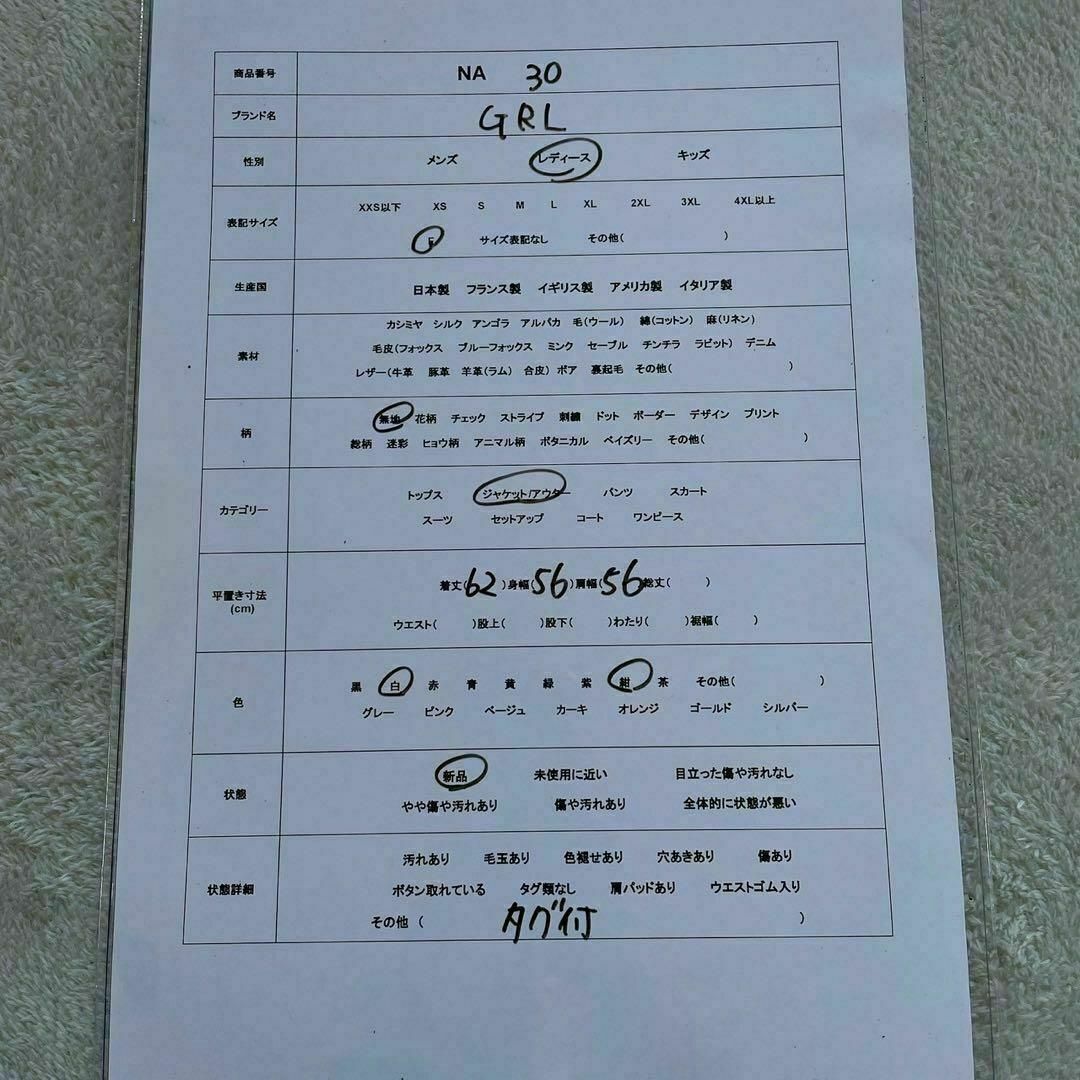 商品番号 NA 30
ブランド名 GRL
性別 メンズ レディース キッズ
表記サイズ
XXS以下 XS S M L XL 2XL 3XL 4XL以上
F サイズ表記なし その他( )
生産国 日本製 フランス製 イギリス製 アメリカ製 イタリア製
素材
カシミヤ シルク アンゴラ アルパカ 毛(ウール) 綿(コットン) 麻(リネン)
毛皮(フォックス ブルーフォックス ミンク セーブル チンチラ ラビット) デニム
レザー(牛革 豚革 羊革(ラム) 合皮) ボア 裏起毛 その他( )
柄
無地 花柄 チェック ストライプ 刺繍 ドット ボーダー デザイン プリント
総柄 迷彩 ヒョウ柄 アニマル柄 ボタニカル ペイズリー その他( )
カテゴリー
トップス ジャケット/アウター パンツ スカート
スーツ セットアップ コート ワンピース
平置き寸法
(cm)
着丈(62)身幅(56)肩幅(56 総丈( )
ウエスト( )股上( )股下( )わたり( )裾幅( )
色
黒 白 赤 青 黄 緑 紫 紺 茶 その他( )
グレー ピンク ベージュ カーキ オレンジ ゴールド シルバー
状態
新品 未使用に近い 目立った傷や汚れなし
やや傷や汚れあり 傷や汚れあり 全体的に状態が悪い
状態詳細
汚れあり 毛玉あり 色褪せあり 穴あきあり 傷あり
ボタン取れている タグ類なし 肩パッドあり ウエストゴム入り
その他 ( タグ付 )